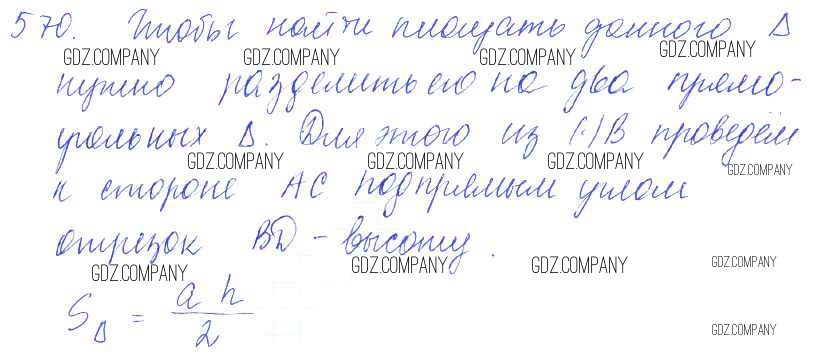 570. Чтобы найти площадь данного Δ
GDZ.COMPANY GDZ.COMPANY GDZ.COMPANY GDZ.COMPANY
нужно разделить его на два прямо-
угольных Δ. Для этого из (·)В проведём
GDZ.COMPANY GDZ.COMPANY GDZ.COMPANY GDZ.COMPANY
к стороне АС под прямым углом
отрезок BD - высоту.
GDZ.COMPANY GDZ.COMPANY GDZ.COMPANY GDZ.COMPANY
S_Δ = a h / 2
GDZ.COMPANY